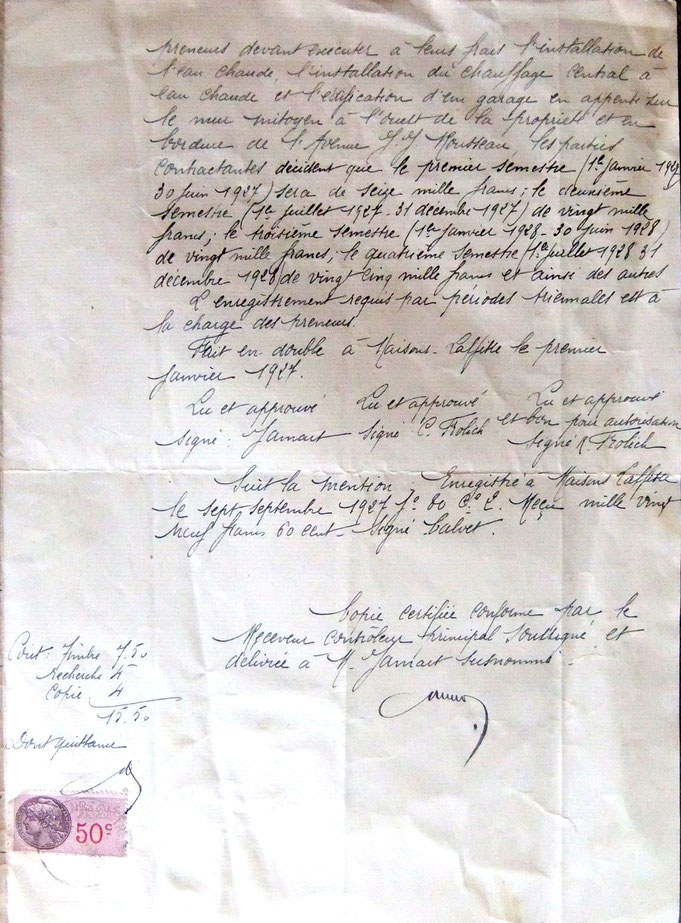 preneurs devant exécuter à leurs frais l'installation de
l'eau chaude, l'installation du chauffage central à
eau chaude et l'édification d'un garage en appentis sur
le mur mitoyen à l'ouest de la propriété et en
bordure de l'Avenue J. J. Rousseau, les parties
contractantes décident que le premier semestre (1er janvier 1927
30 juin 1927) sera de seize mille francs; le deuxième
semestre (1er juillet 1927 - 31 décembre 1927) de vingt mille
francs; le troisième semestre (1er janvier 1928 - 30 juin 1928)
de vingt mille francs; le quatrième semestre (1er juillet 1928 31
décembre 1928) de vingt cinq mille francs et ainsi des autres
L'enregistrement requis par périodes triennales est à
la charge des preneurs.
Fait en double à Maisons-Laffitte le premier
Janvier 1927.
Lu et approuvé Lu et approuvé Lu et approuvé
et bon pour autorisation
Signé: Jamart Signé C. Frolich Signé R Frolich
Suit la mention Enregistré à Maisons Laffitte
le sept septembre 1927 fo 80 Co 2. Reçu mille vingt
neuf francs 60 cent. Signé Calvet.
Copie certifiée conforme par le
Receveur Contrôleur Principal soussigné et
délivrée à M. Jamart susnommé.
Cout: Timbre 7,50
Recherche 4
Copie 4
15.50
Dont quittance
50c